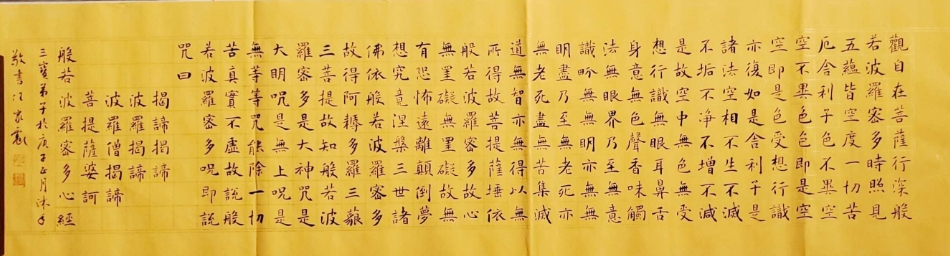 觀自在菩薩行深般
若波羅蜜多時照見
五蘊皆空度一切苦
厄舍利子色不異空
空不異色色即是空
空即是色受想行識
亦復如是舍利子是
諸法空相不生不滅
不垢不淨不增不減
是故空中無色無受
想行識無眼耳鼻舌
身意無色聲香味觸
法無眼界乃至無意
識界無無明亦無無
明盡乃至無老死亦
無老死盡無苦集滅
道無智亦無得以無
所得故菩提薩埵依
般若波羅蜜多故心
無罣礙無罣礙故無
有恐怖遠離顛倒夢
想究竟涅槃三世諸
佛依般若波羅蜜多
故得阿耨多羅三藐
三菩提故知般若波
羅蜜多是大神呪是
大明呪是無上呪是
無等等呪能除一切
苦真實不虛故說般
若波羅蜜多呪即說
呪曰
揭諦揭諦
波羅揭諦
波羅僧揭諦
菩提薩婆訶
般若波羅蜜多心經
三寶弟子於庚子正月沐手
敬書